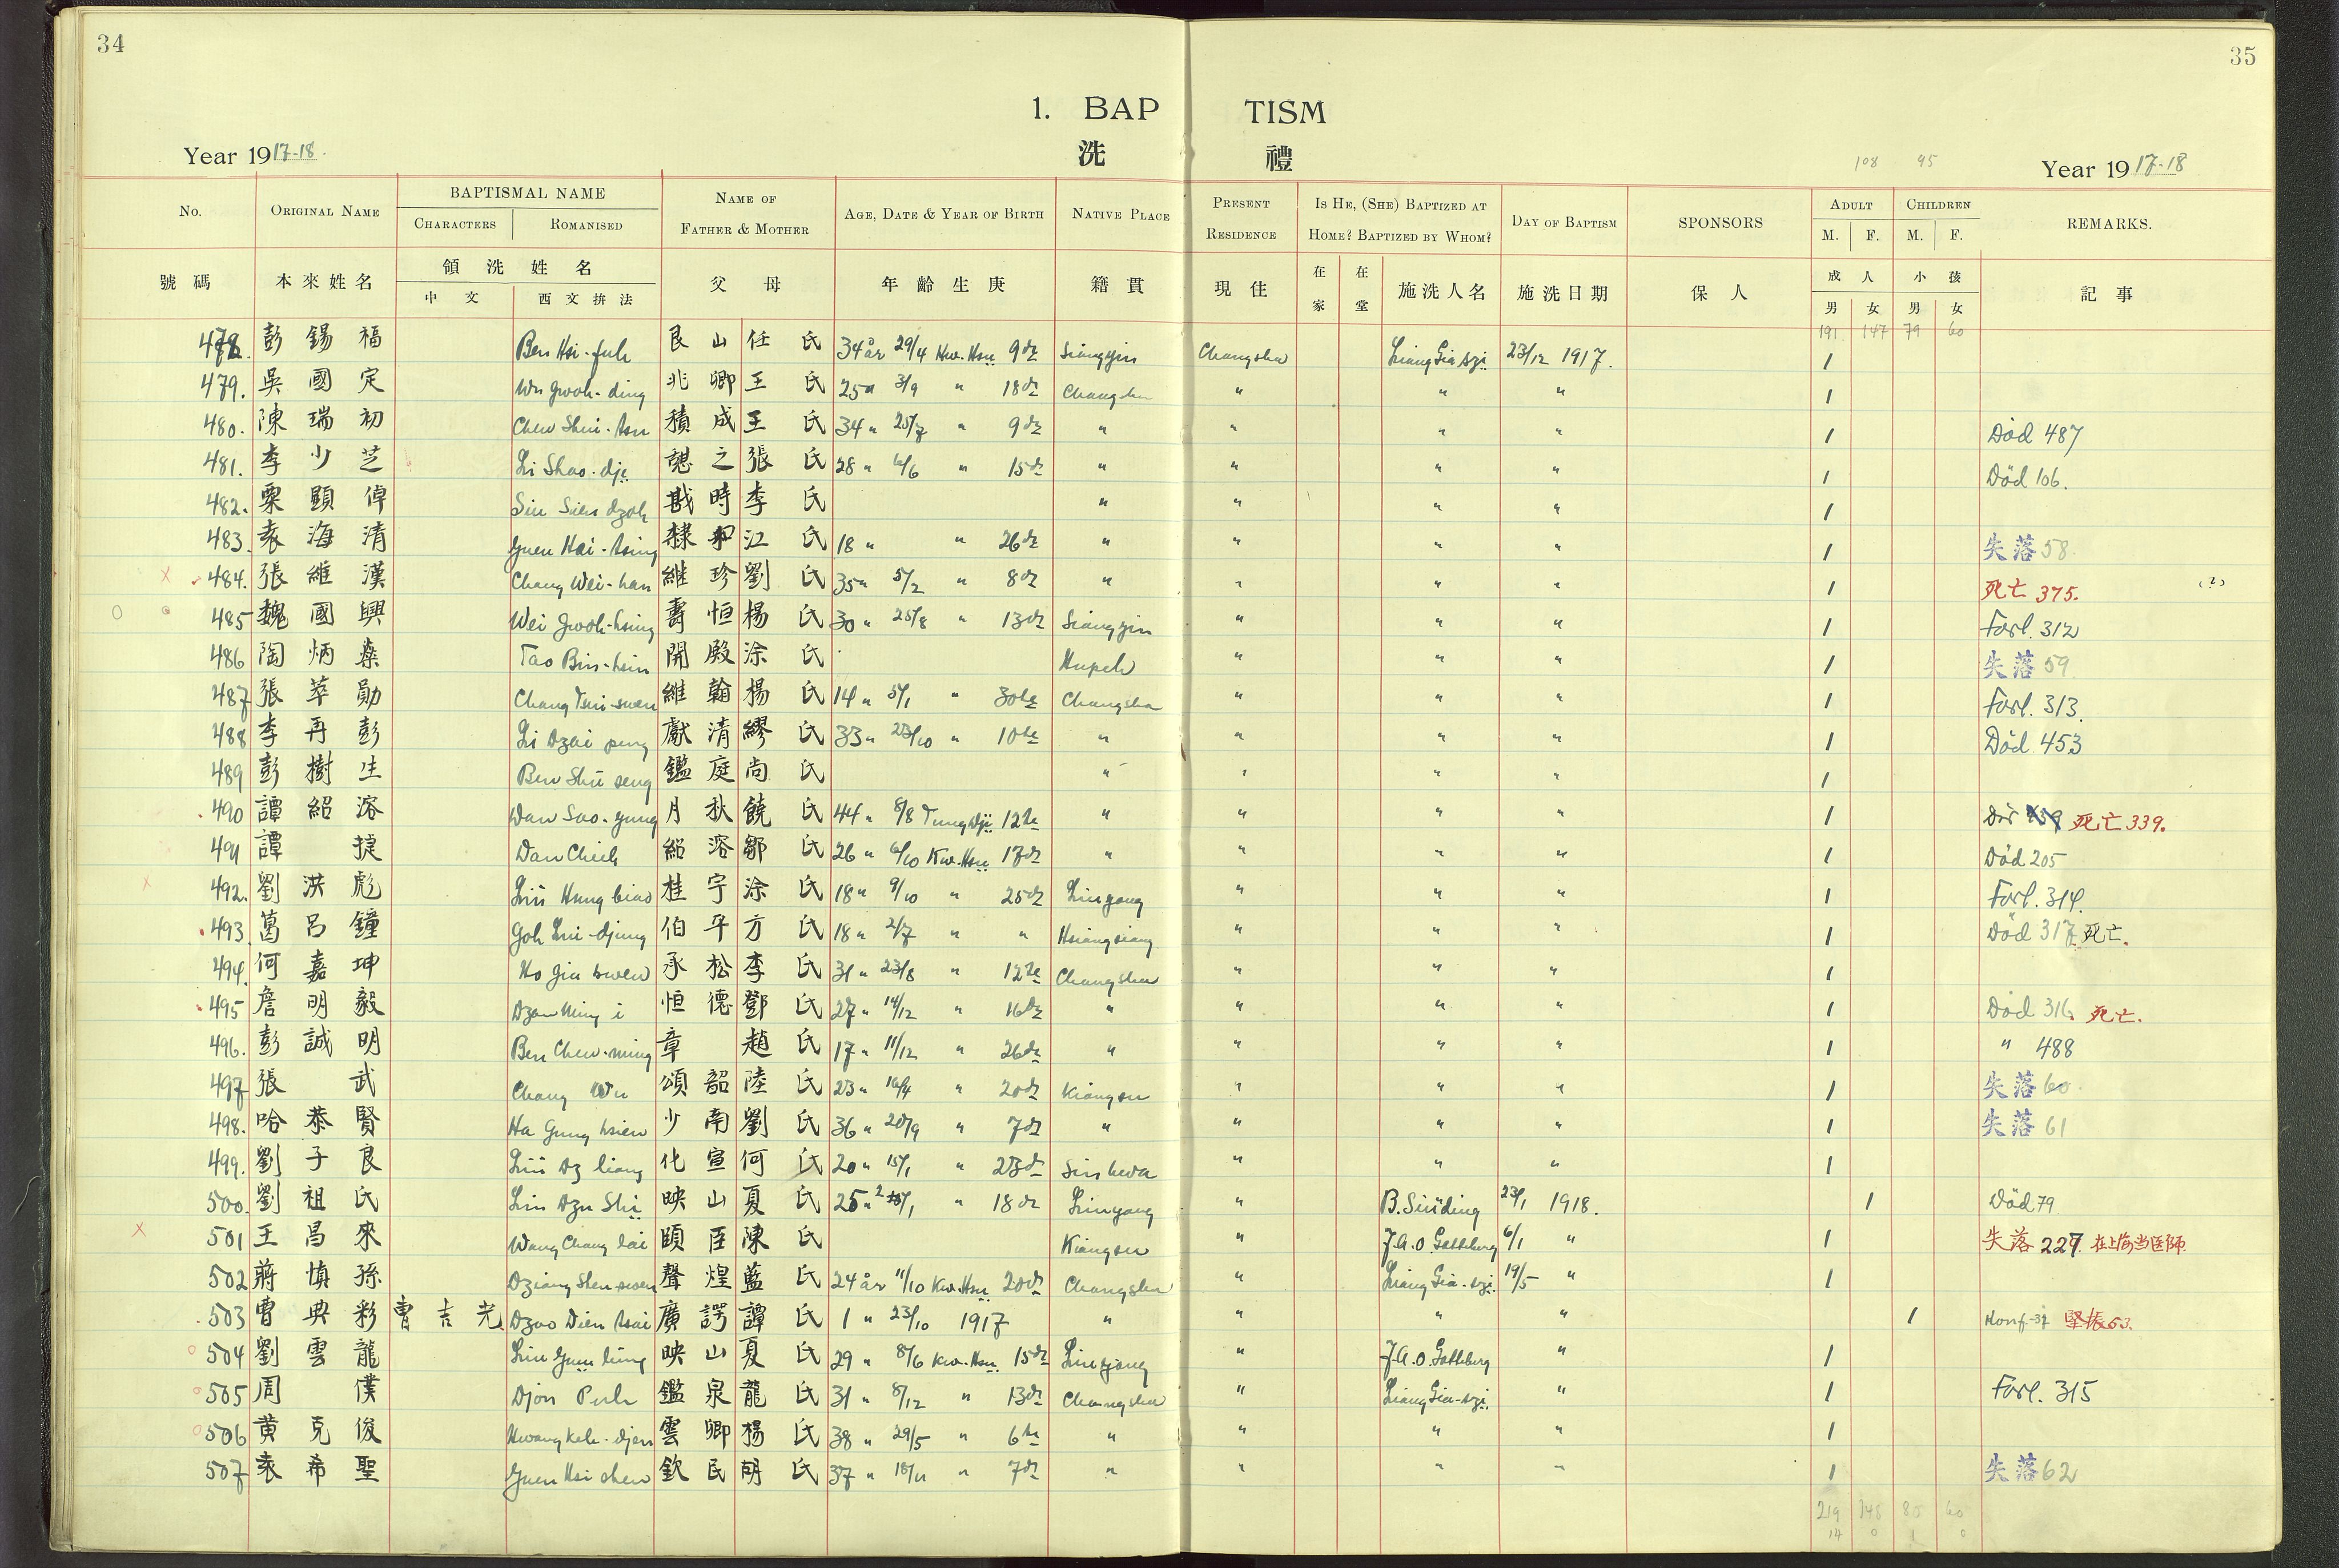 34
35
1. BAP TISM
洗 禮
Year 1917-18.
108 95
Year 1917-18
No. ORIGINAL NAME BAPTISMAL NAME CHARACTERS ROMANISED NAME OF FATHER & MOTHER AGE, DATE & YEAR OF BIRTH NATIVE PLACE PRESENT RESIDENCE IS HE, (SHE) BAPTIZED AT HOME? BAPTIZED BY WHOM? DAY OF BAPTISM SPONSORS ADULT M. F. CHILDREN M. F. REMARKS.
號碼 本來姓名 領洗姓名 中文 西文拚法 父母 年齡生庚 籍貫 現住 在家 在堂 施洗人名 施洗日期 保人 成人 男 女 小孩 男 女 記事
191 147 79 60
478. 彭錫福 Ben Hsi-fuh 艮山 任氏 34 år 29/4 Kw. Hsü 9de Siangyin Changsha Liang Gia-szi 23/12 1917. 1
479. 吳國定 Wu Gwoh-ding 兆卿 王氏 25 " 3/9 " 18de Changsha " " " 1
480. 陳瑞初 Chen Shui-tsu 積成 王氏 34 " 25/7 " 9de " " " " 1 Död 487
481. 李少芝 Li Shao-dji 張氏 28 " 6/6 " 15de " " " " 1 Död 106.
482. 顕 李氏 " " " " 1
483. 袁海清 Yuen Hai-tsing 和 江氏 18 " " 26de " " " " 1 失落 58
484. 張維漢 Chang Wei-han 継珍 劉氏 35 " 5/2 " 8de " " " " 1 死亡 375. (2)
485 魏國興 Wei Gwoh-hsing 壽恒 楊氏 30 " 25/8 " 13de Siangyin " " " 1 Forl. 312
486 陶炳燊 Tao Bin-hsin 開殿 涂氏 Hupeh " " " 1 失落 59
487 張萃勛 Chang Tsui-suen 維翰 楊氏 14 " 5/1 " 30te Changsha " " " 1 Forl. 313.
488 李再彭 Li Dzai peng 獻清 繆氏 33 " 23/10 " 10te " " " " 1 Död 453
489 彭樹生 Ben Shü seng 鑑庭 尚氏 " " " " 1
490 譚紹溶 Dan Sao-yung 月秋 饒氏 44 " 8/8 Tung Dji 12te " " " " 1 死亡 339.
491 譚捷 Dan Chieh 紹溶 鄒氏 26 " 6/10 Kw. Hsü 17de " " " " 1 Död 205
492. 劉洪彪 Liü Hung biao 桂宇 涂氏 18 " 9/10 " 25de Liuyang " " " 1 Forl. 314.
493. 葛呂鐘 Goh Lui-djung 伯平 方氏 18 " 2/7 " " Hsiangsiang " " " 1 Död 317 死亡.
494. 何嘉坤 Ho Gia kwen 承松 李氏 31 " 23/8 " 12te Changsha " " " 1
495 詹明毅 Dzan Ming i 恒德 鄧氏 27 " 14/12 " 16de " " " " 1 Död 316. 死亡.
496. 彭誠明 Ben Chen-ming 章 趙氏 17 " 11/12 " 26de " " " " 1 " 488
497 張武 Chang Wu 頌韶 陸氏 23 " 16/4 " 20de Kiangsu " " " 1 失落 60
498. 哈恭賢 Ha Gung hsien 少南 劉氏 36 " 20/9 " 7de " " " " 1 失落 61
499. 劉子良 Liü Dz liang 化宣 何氏 20 " 15/1 " 23de Sinhwa " " " 1
500. 劉祖氏 Liu Dzu Shi 映山 夏氏 25 " " 18de Liuyang " B. Sinding 23/1 1918. 1 Död 79
501 王昌來 Wang Chang lai 頤臣 陳氏 Kiangsu " J.A.O. Gotteberg 6/1 " 1 失落 227. 在上海当医師.
502 蔣慎孫 Dziang Shen-swen 聲煌 藍氏 24 år 11/10 Kw. Hsü 20de Changsha " Liang Gia-szi 19/5 " 1
503 曹典彩 曹吉光 Dzao Dien tsai 廣諤 譚氏 1 " 23/10 1917 " " " " 1 Konf.-37 堅振53.
504 劉雲龍 Liu Yuin lung 映山 夏氏 29 " 8/6 Kw. Hsü 15de Liuyang " J.A.O. Gotteberg " 1
505 周僕 Djou Puh 鑑泉 龍氏 31 " 8/12 " 13de Changsha " Liang Gia-szi. " 1 Forl. 315
506 黄克俊 Hwang Keh-djen 雲卿 楊氏 38 " 29/5 " 6te " " " " 1
507 袁希聖 Yuen Hsi shen 欽民 胡氏 37 " 18/11 " 7de " " " " 1 失落 62
219 148 80 60
14 0 1 0